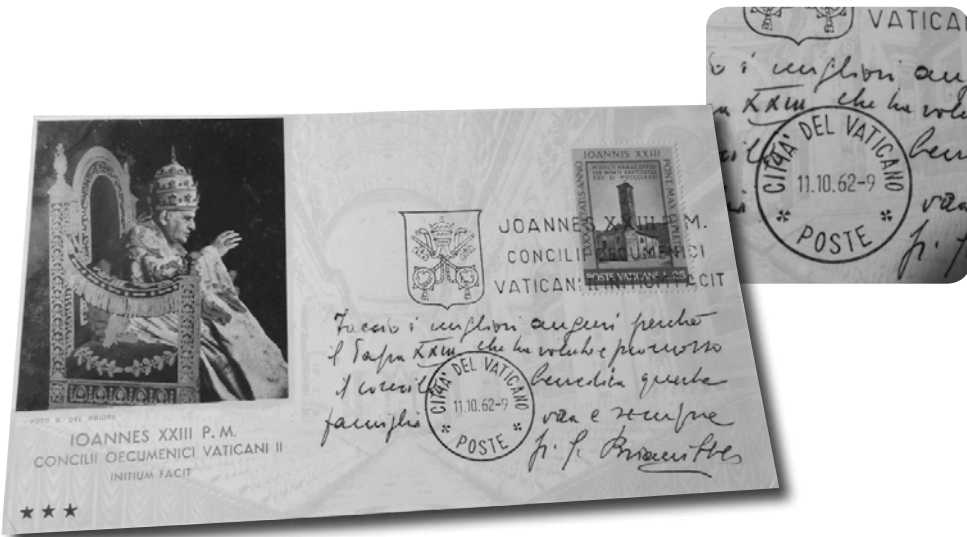 FOTO G. DEL PRIORE
IOANNES XXIII P. M.
CONCILII OECUMENICI VATICANI II
INITIUM FACIT
★ ★ ★
JOANNES XXIII P. M.
CONCILII OECUMENICI
VATICANI II INITIUM FACIT
IOANNIS XXIII
POSTE VATICANE L. 25
Faccio i migliori auguri perchè
il Papa XXIII che ha voluto e promosso
il concilio benedica questa
famiglia ora e sempre
CITTA' DEL VATICANO
11.10.62-9
POSTE
VATICA
i migliori au
XXIII che ha volu
CITTA' DEL VATICANO
11.10.62-9
POSTE